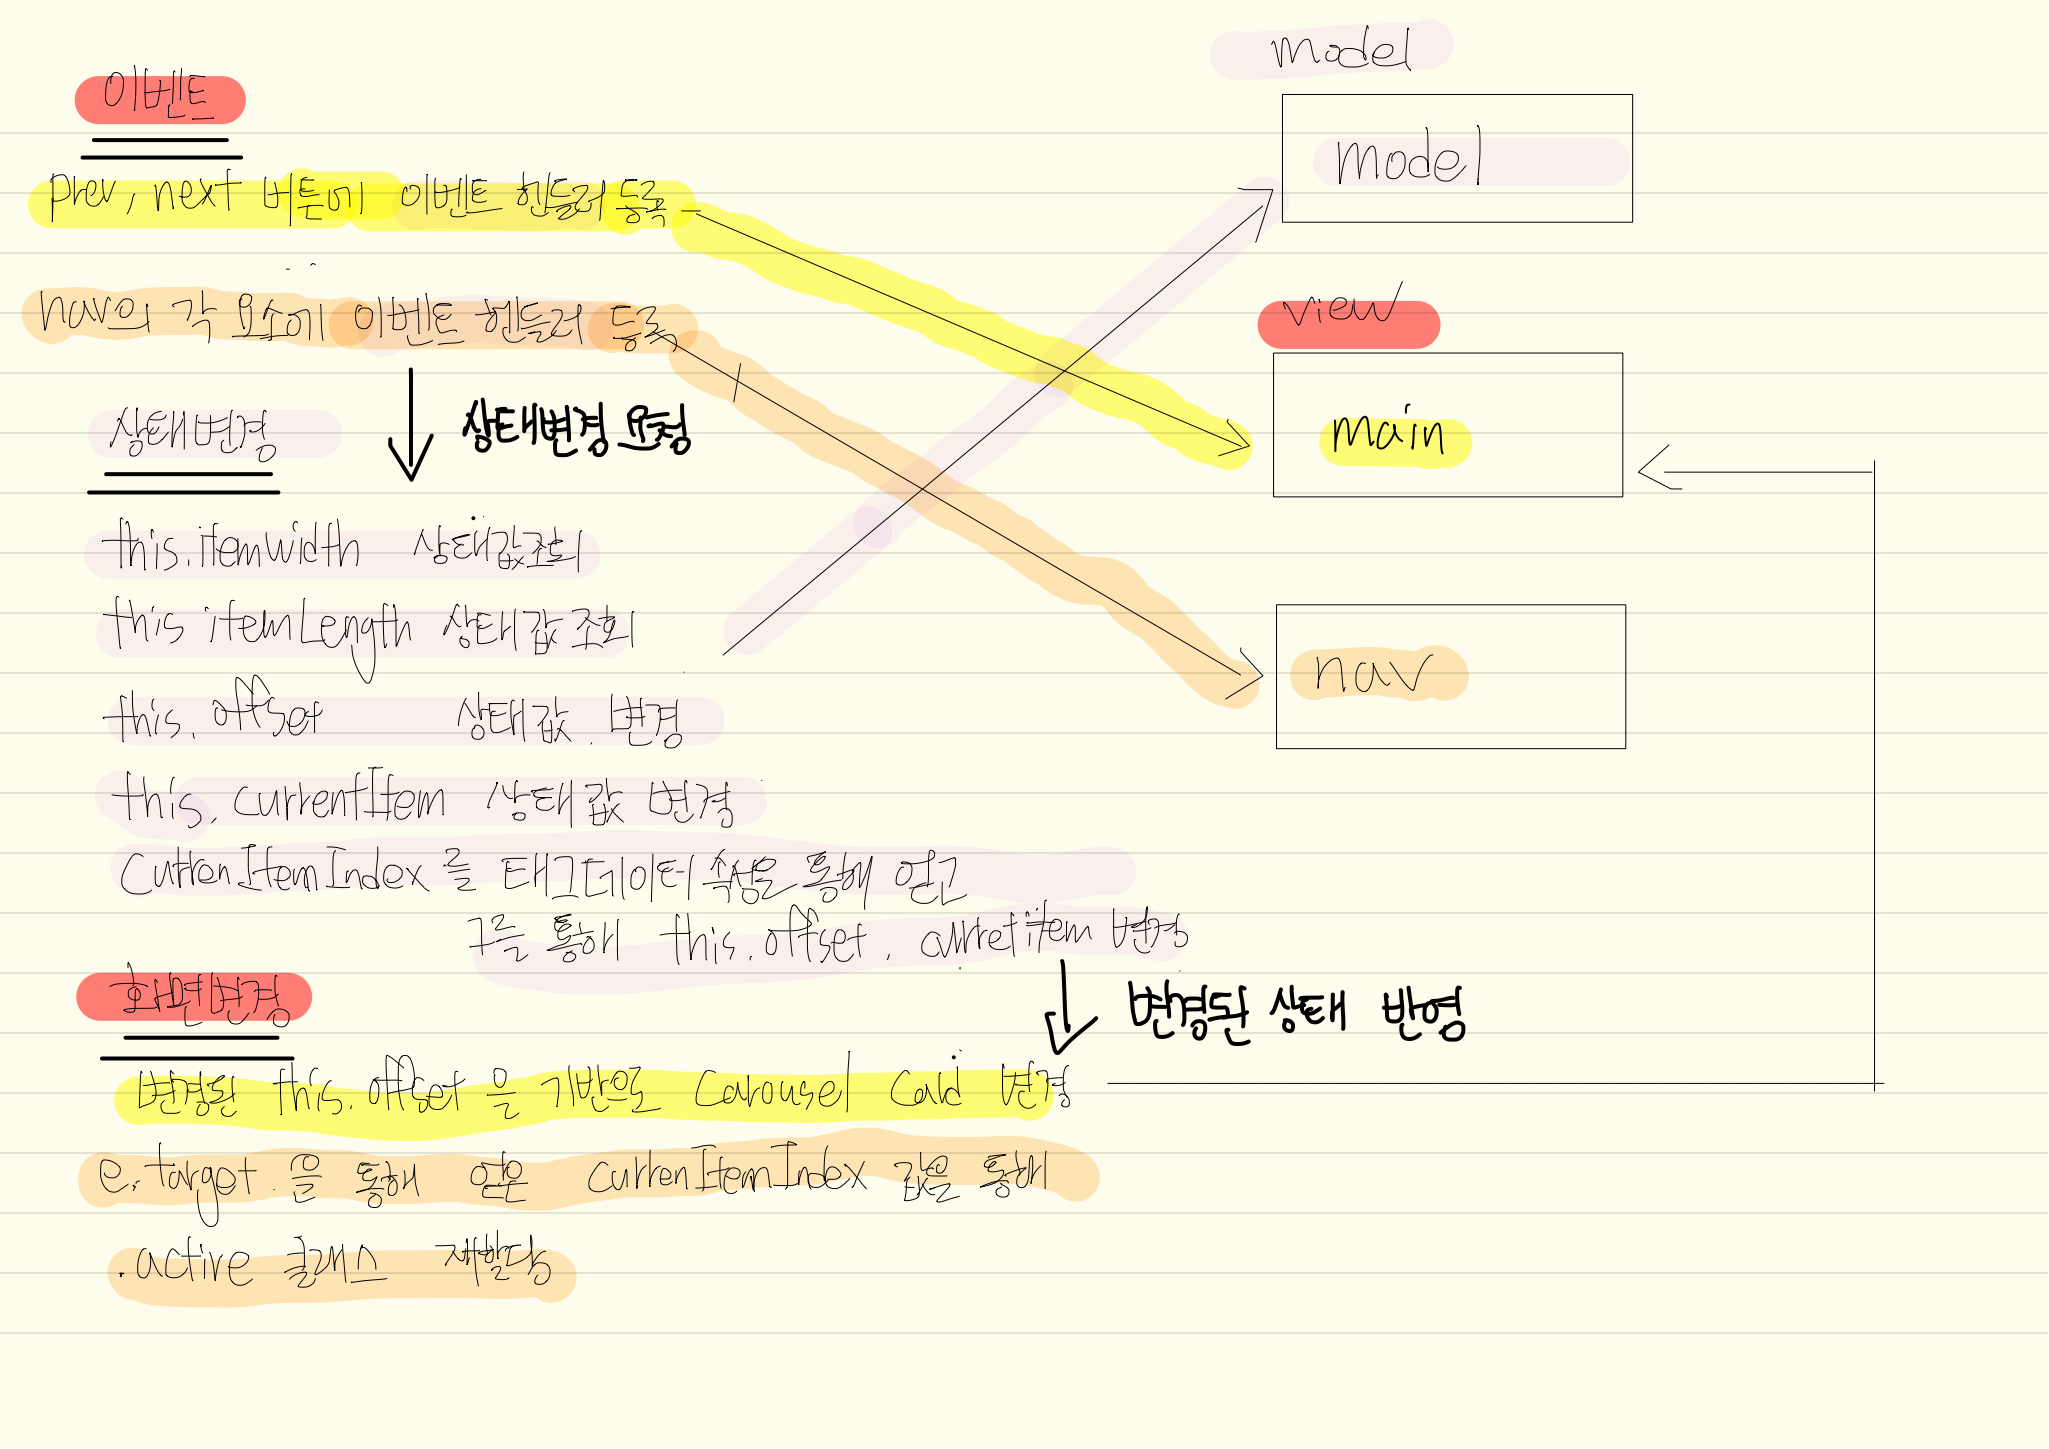 이벤트
prev, next 버튼에 이벤트 헨들러 등록
nav의 각 요소에 이벤트 헨들러 등록
상태변경 요청
상태변경
this.itemWidth 상태값조회
this itemLength 상태값 조회
this.offset 상태값. 변경
this.currentItem 상태값 변경
CurrenItemIndex를 태그데이터속성을 통해 얻고
그를 통해 this.offset, curretitem 변경
변경된 상태 반영
화면변경
변경된 this.offset을 기반으로 Carousel Card 변경
e.target.을 통해 얻은 currenItemIndex 값을 통해
.active 클래스 재할당
model
model
view
main
nav